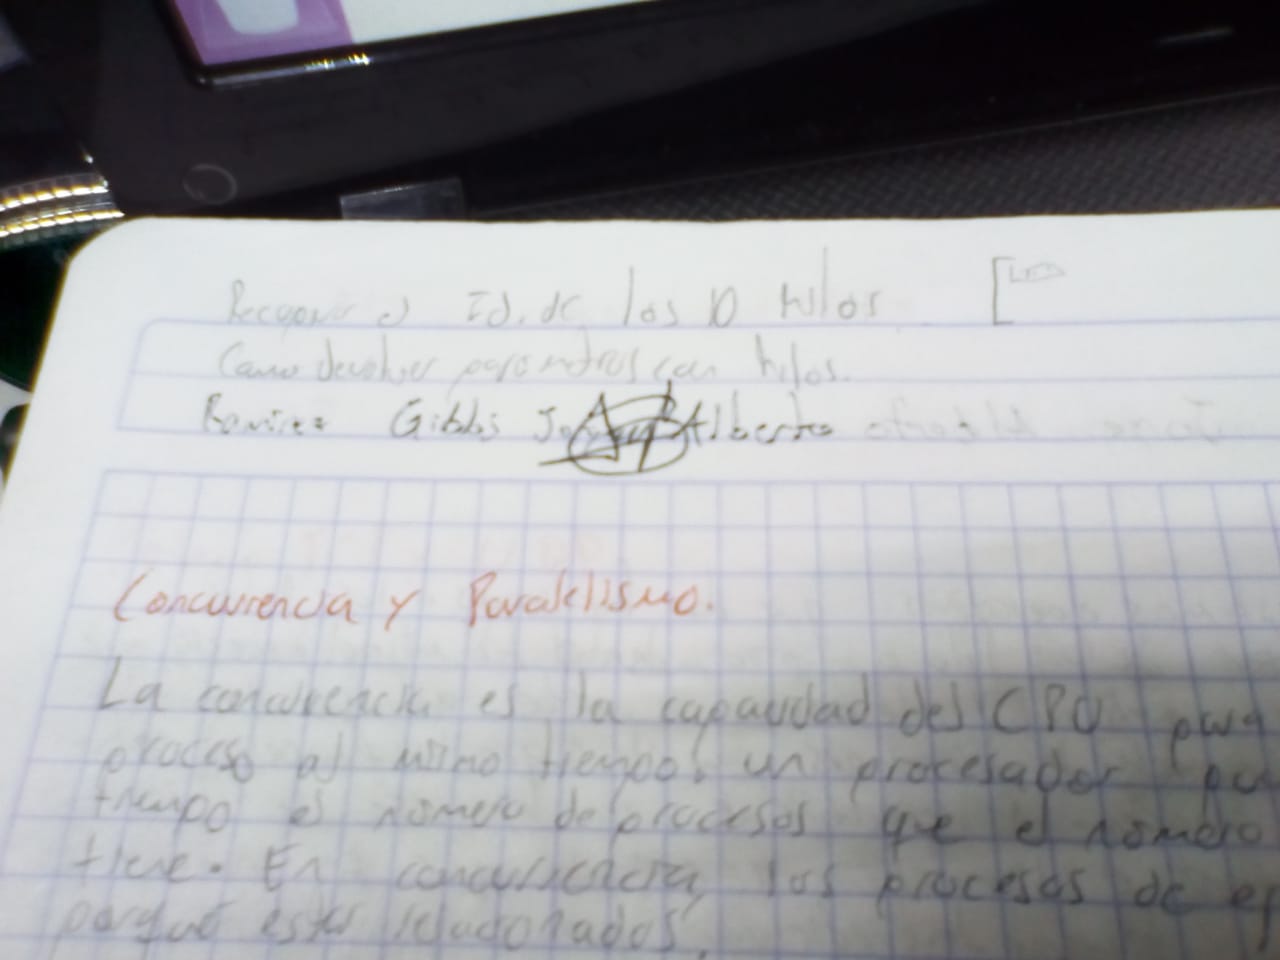 Recuperar el Id. de los 10 hilos
Como devolver parametros con hilos.
Ramirez Gibbs Alberto
Concurrencia y Paralelismo.
La concurrencia es la capacidad del CPU para
proceso al mismo tiempo, un procesador
tiempo el número de procesos que el número
tiene. En concurrencia, los procesos de
porque estan relacionados.